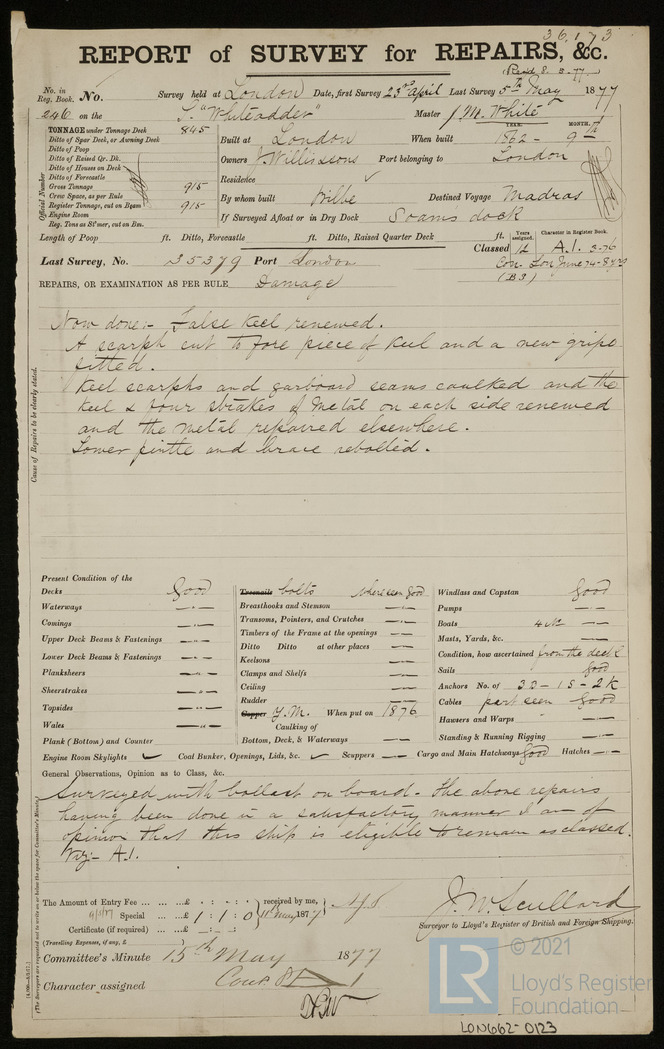 36173
REPORT of SURVEY for REPAIRS, &c.
No. in Reg. Book. No. Survey held at London Date, first Survey 23rd April Last Survey 5th May 1877
246 on the S. "Whiteadder" Master J. M. White
TONNAGE under Tonnage Deck 845
Ditto of Spar Deck, or Awning Deck
Ditto of Poop
Ditto of Raised Qr. Dk.
Ditto of Houses on Deck
Ditto of Forecastle
Gross Tonnage 915
Crew Space, as per Rule
Register Tonnage, cut on Beam 915
Engine Room
Reg. Tons as St'mer, cut on Bm.
Official Number
YEAR. MONTH.
Built at London When built 1862 - 9th
Owners J. Willis & Sons Port belonging to London
Residence
By whom built Bilbe Destined Voyage Madras
If Surveyed Afloat or in Dry Dock Soams dock
Length of Poop ft. Ditto, Forecastle ft. Ditto, Raised Quarter Deck ft.
Years assigned. Character in Register Book.
Classed 12 A.1. 3-76
Last Survey, No. 35379 Port London
Con. Lon June 74-8yrs
(B.S.)
REPAIRS, OR EXAMINATION AS PER RULE Damage
Cause of Repairs to be clearly stated.
Now done:- False Keel renewed.
A scarph cut to fore piece of Keel and a new gripe
fitted.
Keel scarphs and garboard seams caulked and the
Keel & four strakes of Metal on each side renewed
and the metal repaired elsewhere.
Lower pintle and brace rebolted.
Present Condition of the
Decks Good
Waterways
Comings
Upper Deck Beams & Fastenings
Lower Deck Beams & Fastenings
Planksheers
Sheerstrakes
Topsides
Wales
Plank (Bottom) and Counter
Treenails bolts where seen good
Breasthooks and Stemson
Transoms, Pointers, and Crutches
Timbers of the Frame at the openings
Ditto Ditto at other places
Keelsons
Clamps and Shelfs
Ceiling
Rudder
Copper Y.M. When put on 1876
Caulking of
Bottom, Deck, & Waterways
Windlass and Capstan Good
Pumps
Boats 4 in
Masts, Yards, &c.
Condition, how ascertained from the deck
Sails good
Anchors No. of 3B - 1S - 2K
Cables part seen Good
Hawsers and Warps
Standing & Running Rigging
Engine Room Skylights Coal Bunker, Openings, Lids, &c. Scuppers Cargo and Main Hatchways Good Hatches
General Observations, Opinion as to Class, &c.
Surveyed with ballast on board. The above repairs
having been done in a satisfactory manner I am of
opinion that this ship is eligible to remain as classed.
Viz- A.1.
The Amount of Entry Fee ... ... ...£ : : received by me,
Special ... ...£ 1 : 1 : 0 11 May 1877
Certificate (if required) ... ...£
(Travelling Expenses, if any, £ )
J. W. Scullard
Surveyor to Lloyd's Register of British and Foreign Shipping.
Committee's Minute 15th May 1877
Character assigned
© 2021
LR
Lloyd's Register
Foundation
LON662-0123